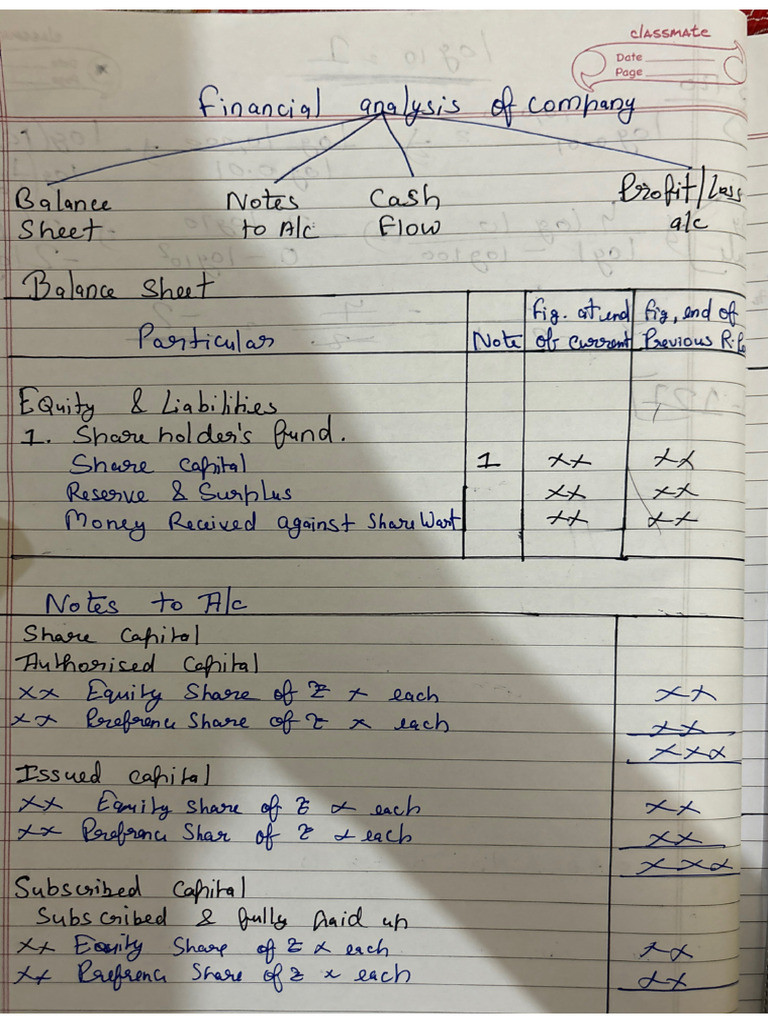 classmate
Date
Page
Financial analysis of company
Balance Sheet
Notes to A/c
Cash Flow
Profit/Loss a/c
Balance Sheet
Particular
Note
fig. at end of current
fig, end of Previous R.P.
Equity & Liabilities
1. Share holder's fund.
Share capital 1 xx xx
Reserve & Surplus xx xx
Money Received against Share Wart xx xx
Notes to A/c
Share Capital
Authorised Capital
xx Equity Share of ₹ x each xx
xx Prefrence Share of ₹ x each xx
xxx
Issued capital
xx Equity Share of ₹ x each xx
xx Prefrence Shar of ₹ x each xx
xxx
Subscribed Capital
Subscribed & fully paid up
xx Equity Share of ₹ x each xx
xx Prefrenc Share of ₹ x each xx